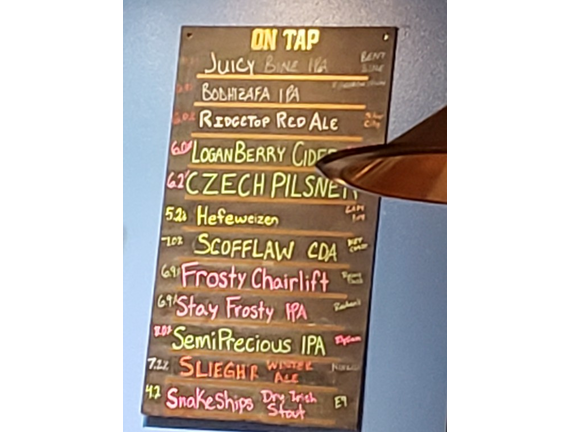 ON TAP
JUICY BINE IPA BENT BINE
BODHIZAFA IPA
RIDGETOP RED ALE Silver City
6.0% LOGANBERRY CIDER
6.2% CZECH PILSNER
5.2% Hefeweizen
7.0% SCOFFLAW CDA
6.9% Frosty Chairlift
6.9% Stay Frosty IPA
8.0% SemiPrecious IPA Elysian
7.2% SLIEGH'R WINTER ALE
4.2 SnakeShips Dry Irish Stout E9